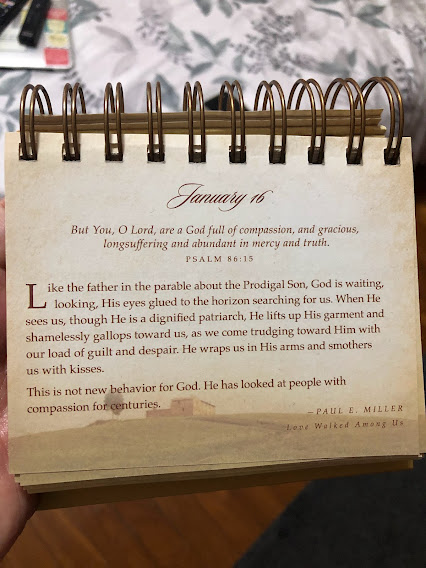 January 16
But You, O Lord, are a God full of compassion, and gracious,
longsuffering and abundant in mercy and truth.
PSALM 86:15
Like the father in the parable about the Prodigal Son, God is waiting,
looking, His eyes glued to the horizon searching for us. When He
sees us, though He is a dignified patriarch, He lifts up His garment and
shamelessly gallops toward us, as we come trudging toward Him with
our load of guilt and despair. He wraps us in His arms and smothers
us with kisses.
This is not new behavior for God. He has looked at people with
compassion for centuries.
—PAUL E. MILLER
Love Walked Among Us